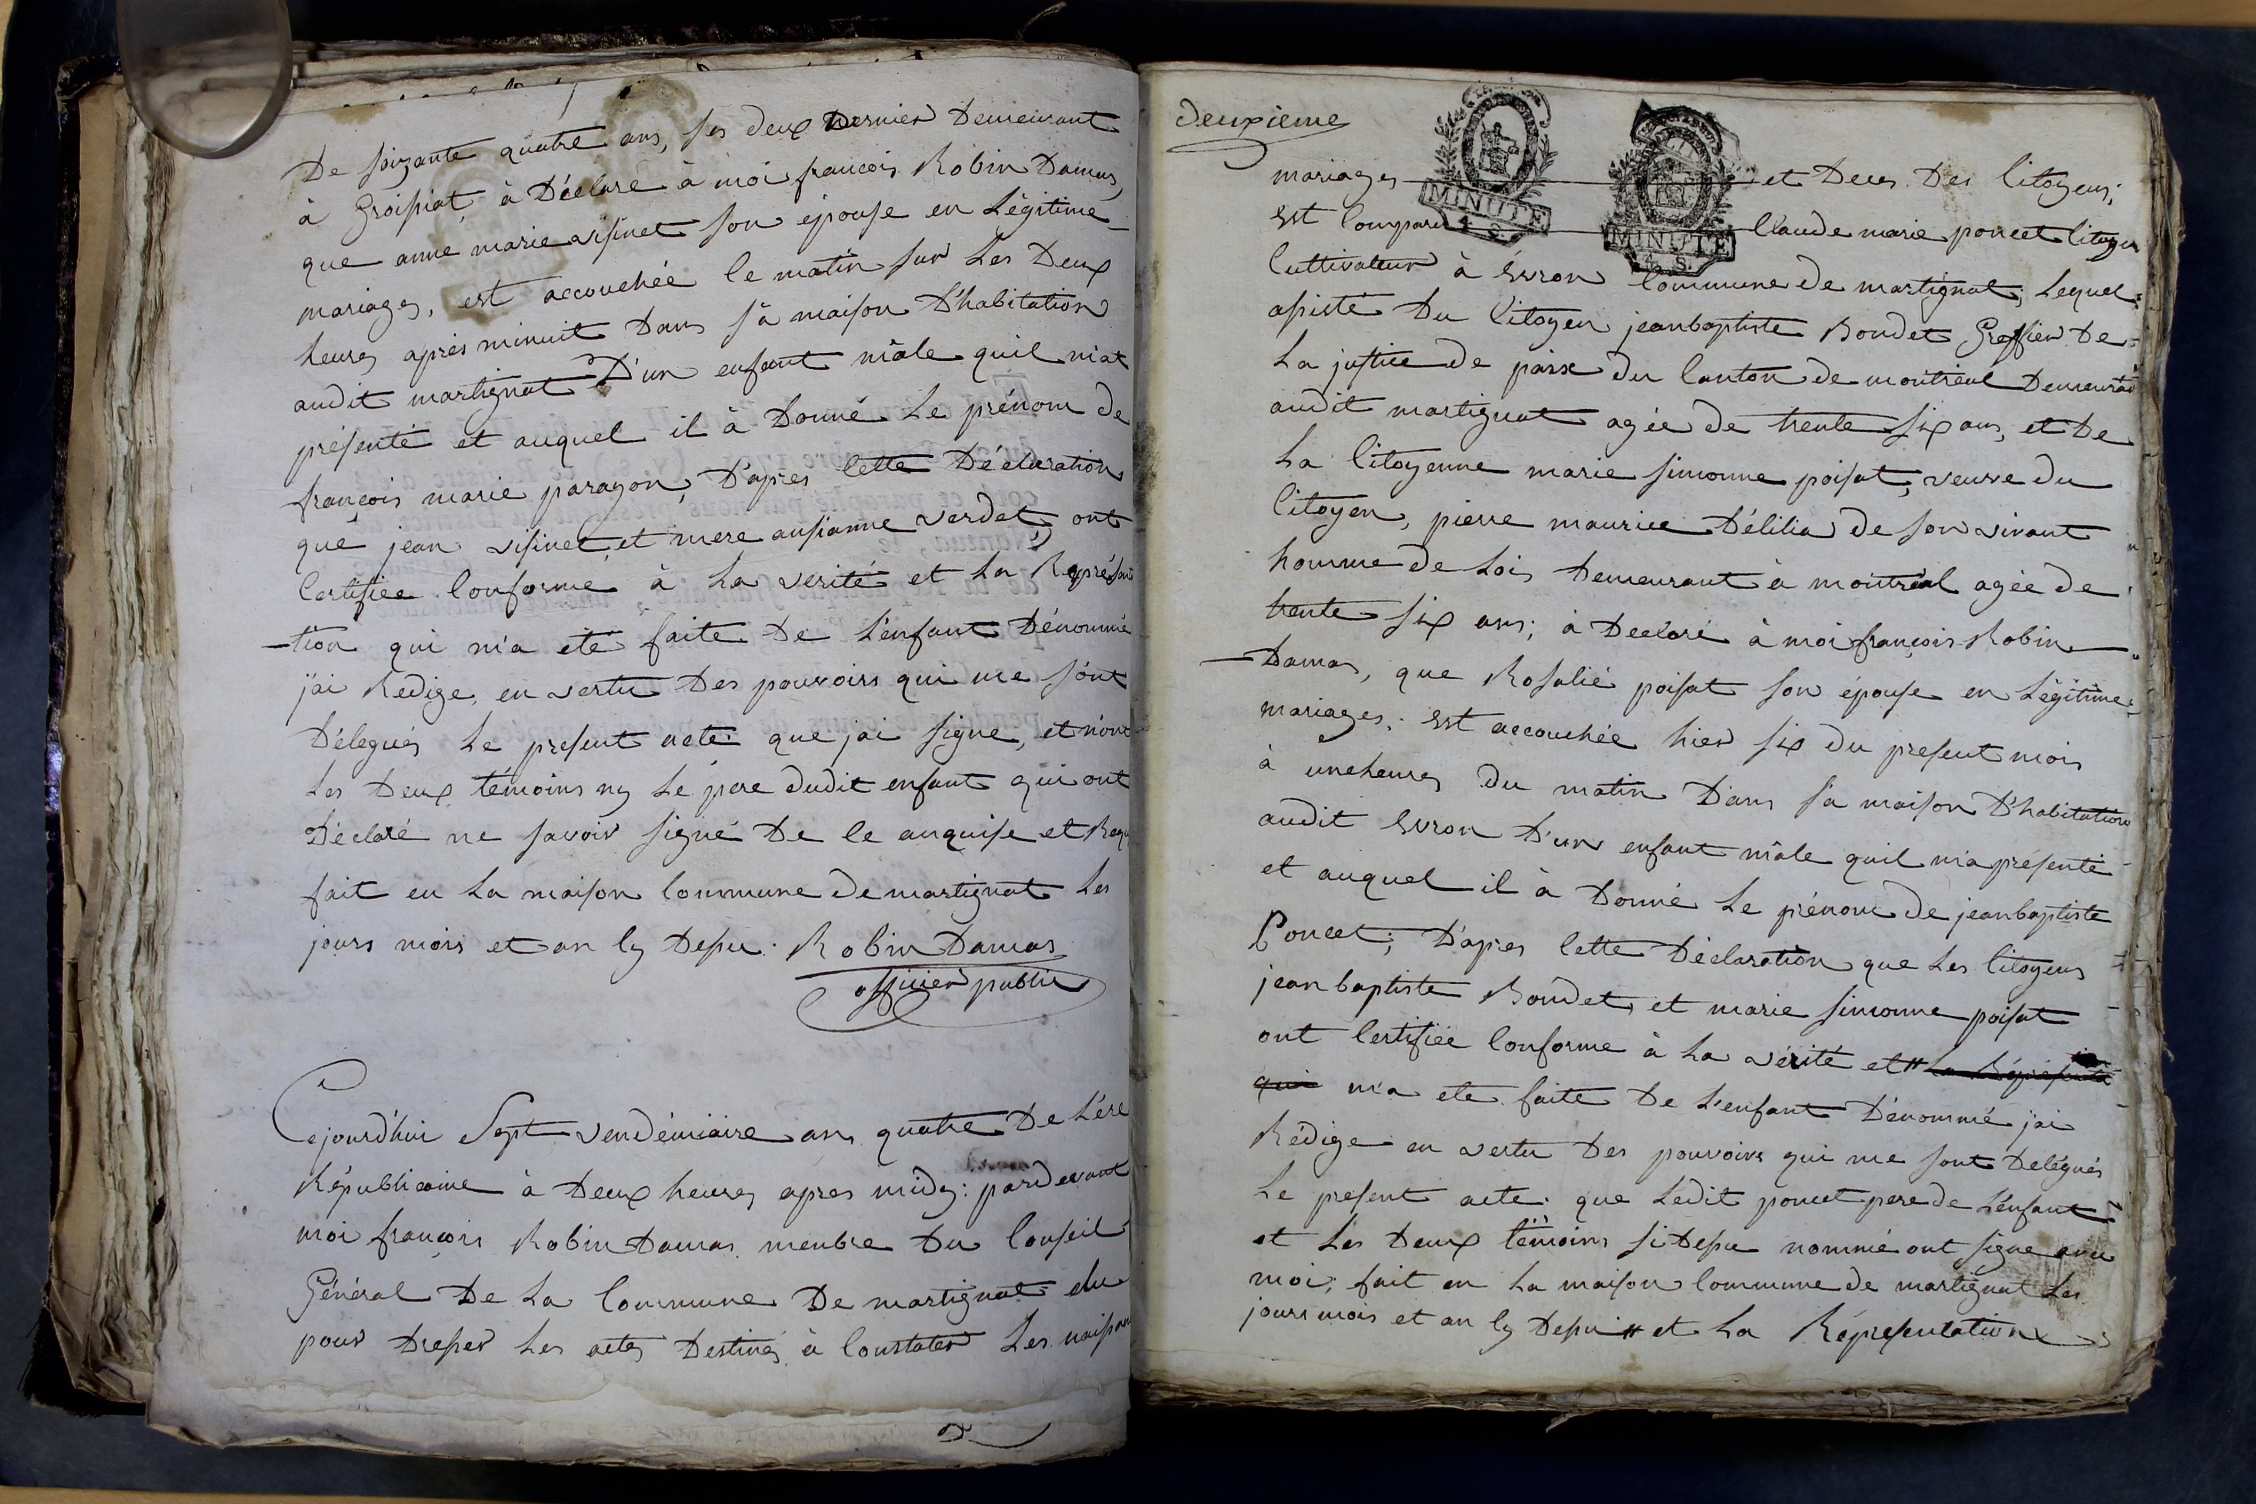 De soixante quatre ans, ses deux Dernier Demeurant
à Groissiat, à Déclaré à moi francois Robin Damas,
que anne marie visinet son épouse en Légitime
mariages, est accouchée le matin sur Les Deux
heures après minuit Dans sa maison D'habitation
audit martignat D'un enfant mâle quil m'at
présenté et auquel il à Donné Le prénom de
françois marie paragon, D'apres Cette Déclaration
que jean visinet, et mere ansianne verdet, ont
Certifiée Conforme à La verité et La Représen
-tion qui m'a eté faite De L'enfant Dénommé
j'ai Redige, en vertu Des pouvoirs qui me sont
Délegués Le present acte que jai signe, et non
Les Deux témoins ny Le pere dudit enfant qui ont
Déclaré ne savoir signé De Ce enquise et Requ
fait en La maison Commune de martignat Les
jours mois et an Cy Dessu. Robin Damas
officier public
Cejourd'hui Sept vendémiaire an quatre De L'ére
Républicaine à Deux heures apres midy: pardevant
moi françois Robin Damas menbre Du Conseil
Général De La Commune De martignat elu
pour Dresser Les actes Destinés à Constater Les naissan
deuxieme
MINUTE
4. S.
MINUTE
4. S.
mariages et Deces Des Citoyens;
Est Comparu Claude marie poncet Citoyen
Cultivateur à Evron Commune de martignat; Lequel
assisté Du Citoyen jeanbaptiste Boudet Greffier De
La justice de paix Du Canton de montréal Demeurant
audit martignat agée de trente six ans, et De
La Citoyenne marie simonne poisat, veuve du
Citoyen, pierre maurice Délilia de son vivant
homme de Lois Demeurant à montréal agée de
trente six ans; à Declaré à moi françois Robin
Damas, que Rosalie poisat son épouse en Légitime
mariages; Est accouchée hier six du present mois
à une heures Du matin Dans sa maison D'habitation
audit Evron D'un enfant mâle quil m'a présenté
et auquel il à Donné Le prénom de jeanbaptiste
Poncet; D'apres Cette Déclaration que Les Citoyens
jean baptiste Boudet et marie simonne poisat
ont Certifiée Conforme à La vérité et # La Représenta
qui m'a ete faite De L'enfant Dénommé jai
Rédige en vertu Des pouvoirs qui me sont Delégués
Le present acte. que Ledit poncet pere de L'enfant
et Les Deux témoins si Dessu nommé ont signe avec
moi; fait en La maison Commune de martignat Les
jours mois et an Cy Dessu # et La Représentation